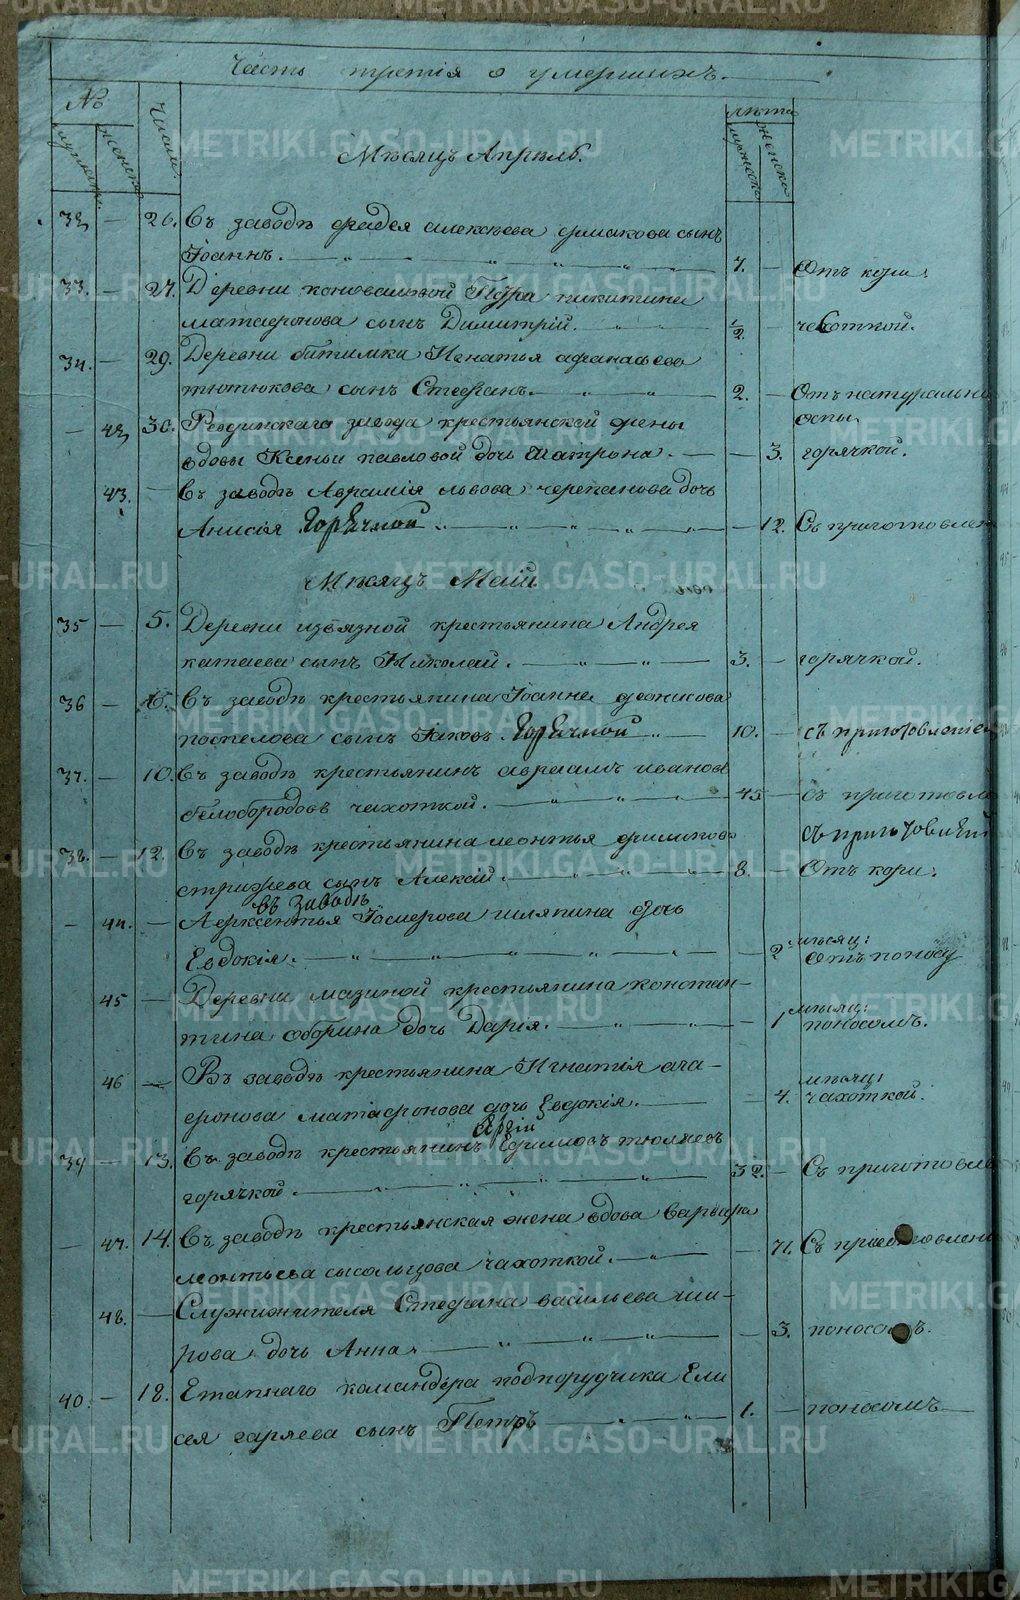 Часть третія о умершихъ.
№
Числа
лѣта
мужеска
женска
Мѣсяцъ Апрѣль.
32 — 26. Въ заводѣ фадея алексѣева ермакова сынъ
Іоаннъ. 7. — Отъ кори.
33. — 27. Деревни коноваловой Петра никитина
матафонова сынъ Димитрій. 1/2. чехоткой.
34. — 29. Деревни битимки Игнатья афанасьева
тютюкова сынъ Стефанъ. 2. — Отъ натуральной
оспы.
— 42 30. Ревдинскаго завода крестьянской жены
вдовы Ксеньи павловой дочь Матрона. — 3. горячкой.
43. — Въ заводѣ Авраамія львова черепанова дочь
Анисія горячкой — 12. Съ приготовлен
Мѣсяцъ Маій.
35 — 5. Деревни извязной крестьянина Андрея
катаева сынъ Николай. 3. — горячкой.
36 — Въ заводѣ крестьянина Іоанна деонисова
поспелова сынъ Іаковъ. горячкой 10. — съ приготовленіем
37. — 10. Въ заводѣ крестьянинъ авраамъ ивановъ
белобородовъ чахоткой. 45 — съ приготовле
съ приготовленій
38. — 12. Въ заводѣ крестьянина леонтья филипов
стрижева сынъ Алексій. 8. — Отъ кори.
въ заводѣ
— 44. — Аерксентья Гомерова шляпина дочь
Евдокія. — 2 мѣсяц: Отъ поносу
45 — Деревни мазиной крестьянина констан-
тина оборина дочь Дарія. — 1 мѣсяц: поносомъ.
46 — Въ заводѣ крестьянина Игнатія ага-
фонова матафонова дочь Евдокія. — 4. мѣсяц: чахоткой.
39 — 13. Въ заводѣ крестьянинъ Ефимовъ тюлневъ
горячкой. 32. — Съ приготовле
— 47. 14. Въ заводѣ крестьянская жена вдова варвара
леонтьева сысольцова чахоткой. — 71. Съ приготовлені
48. — Служижителя Стефана васильева ши-
рова дочь Анна. — 3. поносомъ.
40. — 18. Етапнаго командера подпорудчика Ели
сея гаряева сынъ Петръ 1. — поносомъ